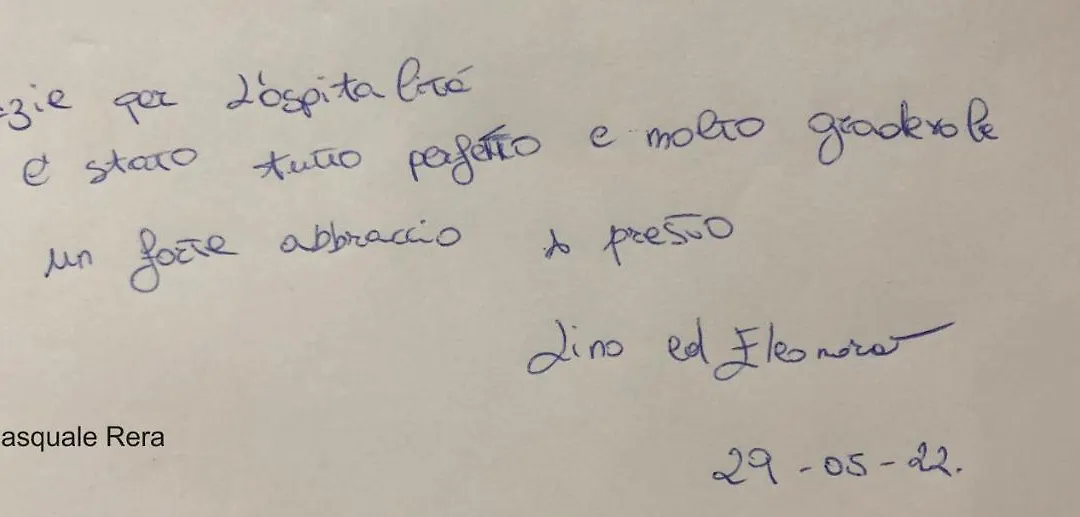 zie per L'ospitalità
è stato tutto perfetto e molto gradevole
un forte abbraccio A presto
Lino ed Eleonora
asquale Rera
29-05-22.